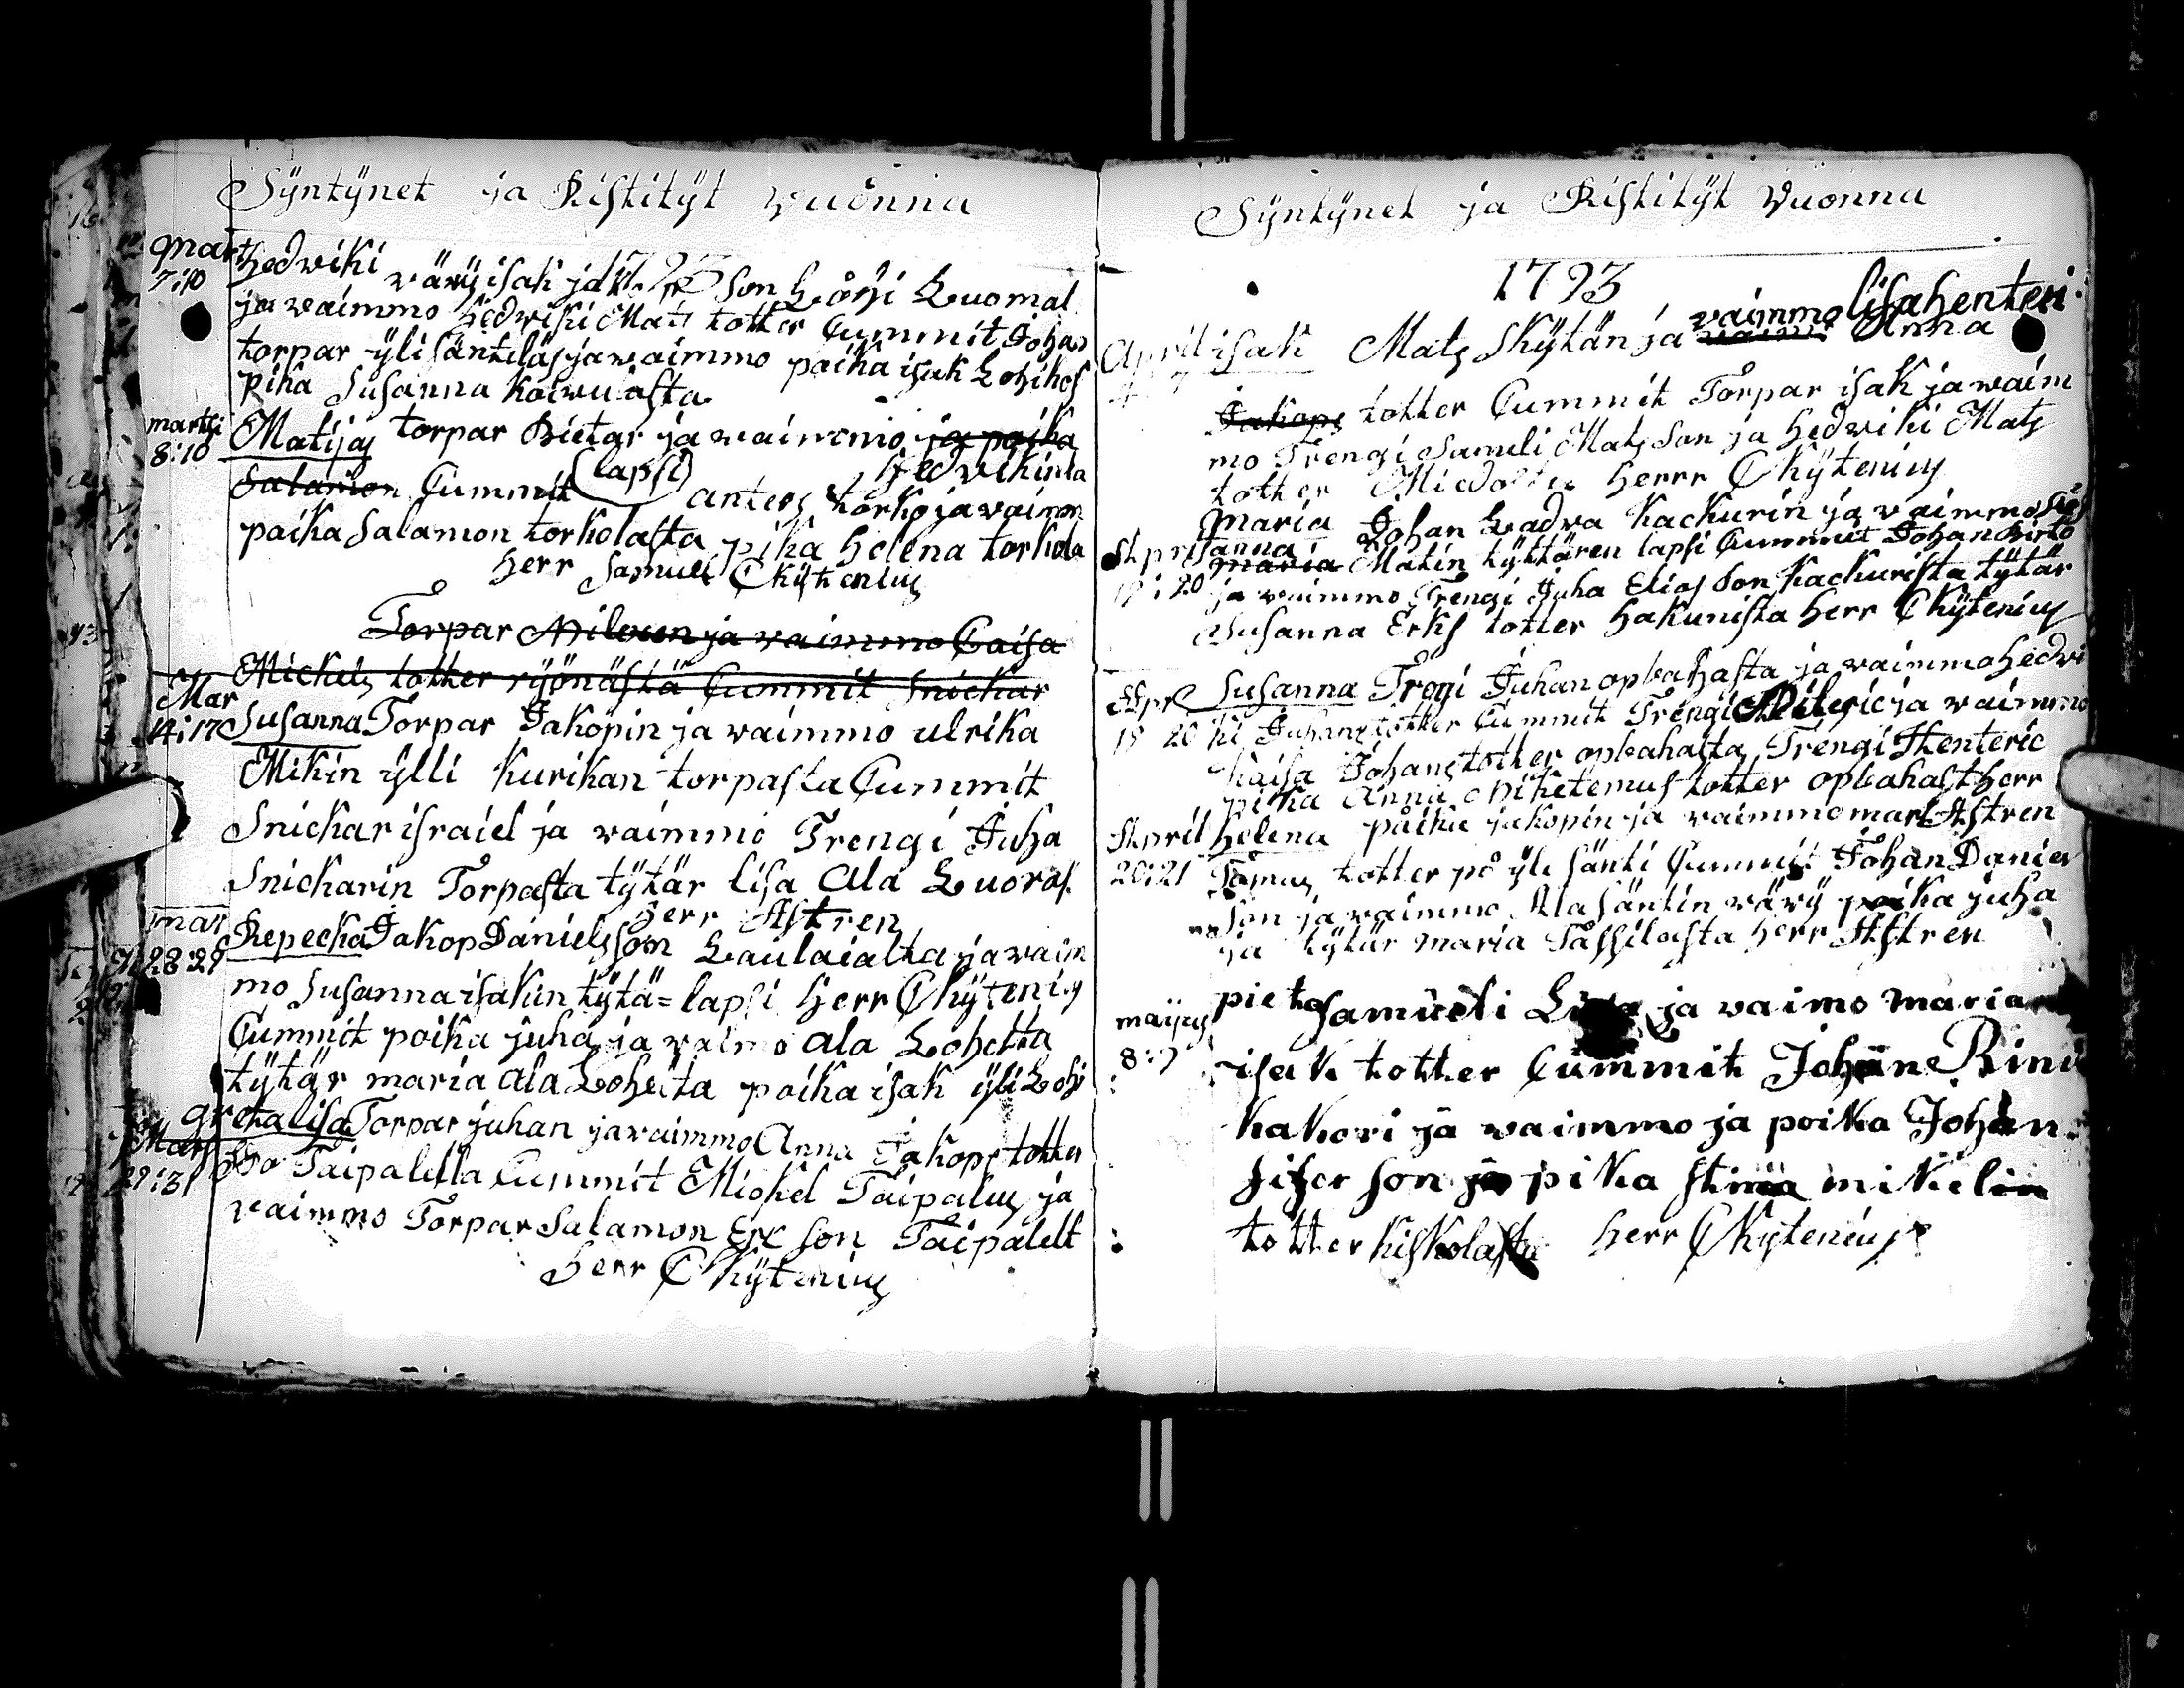 Sÿntÿnet ja Ristitÿt vuonna
1793
Mart hedviki värÿ isak jak son Låhi Luomal
7:10 ja vaimmo hedviki Mats totter Cummit Johan
torpar ÿlisäntiläs ja vaimmo poika isak Lohikos
pika Susanna koivulasta
martsi Matijas torpar Bietar ja vaimmo ja poika
8:10 Salamon Cummit (lapsi) hedvikinla
anters torko ja vaimo
poika Salamon torkolasta pika helena torkola
herr Samuel CKÿtenius
Torpar Miloun ja vaimmo Caisa
Mickels totter rÿönästä Cummit snickar
Mar
14:17 Susanna Torpar Jakopin ja vaimmo ulrika
Mikin ÿlli kurikan torpasta Cummit
Snickar israiel ja vaimmo Trengi Juha
Snickarin Torpasta tÿtär lisa ala Luoros
herr Astren
mar Repecka Jakop Daniels son Laulaialta ja vaim
28:29 mo Susanna isakin tÿtä= lapsi herr CKÿtenius
Cummit poika juha ja vaimo ala Lohelta
tÿtär maria ala Lohelta poika isak ÿli Lohi
greta lisa Torpar juhan ja vaimmo Anna Jakops totter
Mars Taipalella Cummit Mickel Taipalus ja
29:31 vaimmo Torpar Salamon Erc son Taipalelt
herr CKÿtenius
Sÿntÿnet ja Ristitÿt Vuonna
1793
vaimmo lisa henteri
April isak Mats Skÿtän ja vaimo Anna
4 7
Jakops totter Cummit Torpar isak ja vaim
mo Trengi Samuli Mats Son ja hedviki Mats
totter herr CKÿtenius
Maria Johan Ladva kackurin ja vaimmo
April anna maria Matin tÿttären lapsi Cummit Johan Birto
17:20 ja vaimmo Trengi Juha Elias Son kackurista tÿtär
Susanna Erks totter hakunista herr CKÿtenius
Apre Susanna Trogi Juhan opbahasta ja vaimmo hedvi
18 20 ki Juhans totter Cummit Trengi ja vaimmo
kaisa Johans totter opbahasta Trengi Henteric
pika Anna totter opbahast herr
April helena påika jakopin ja vaimmo mari Astren
20:21 Tomus totter på ÿli Sänti Cummit Johan Daniel
son ja vaimmo Ala säntin värÿ poika juha
ja tÿtär maria Tassilasta herr Astren
piet Samueli ja vaimo maria
maijus
8:9 isak totter Cummit Johan Rini
kakori ja vaimmo ja poika Johan
sifer son ja pika stina mikelin
totter kiskolasta herr CKÿtenius